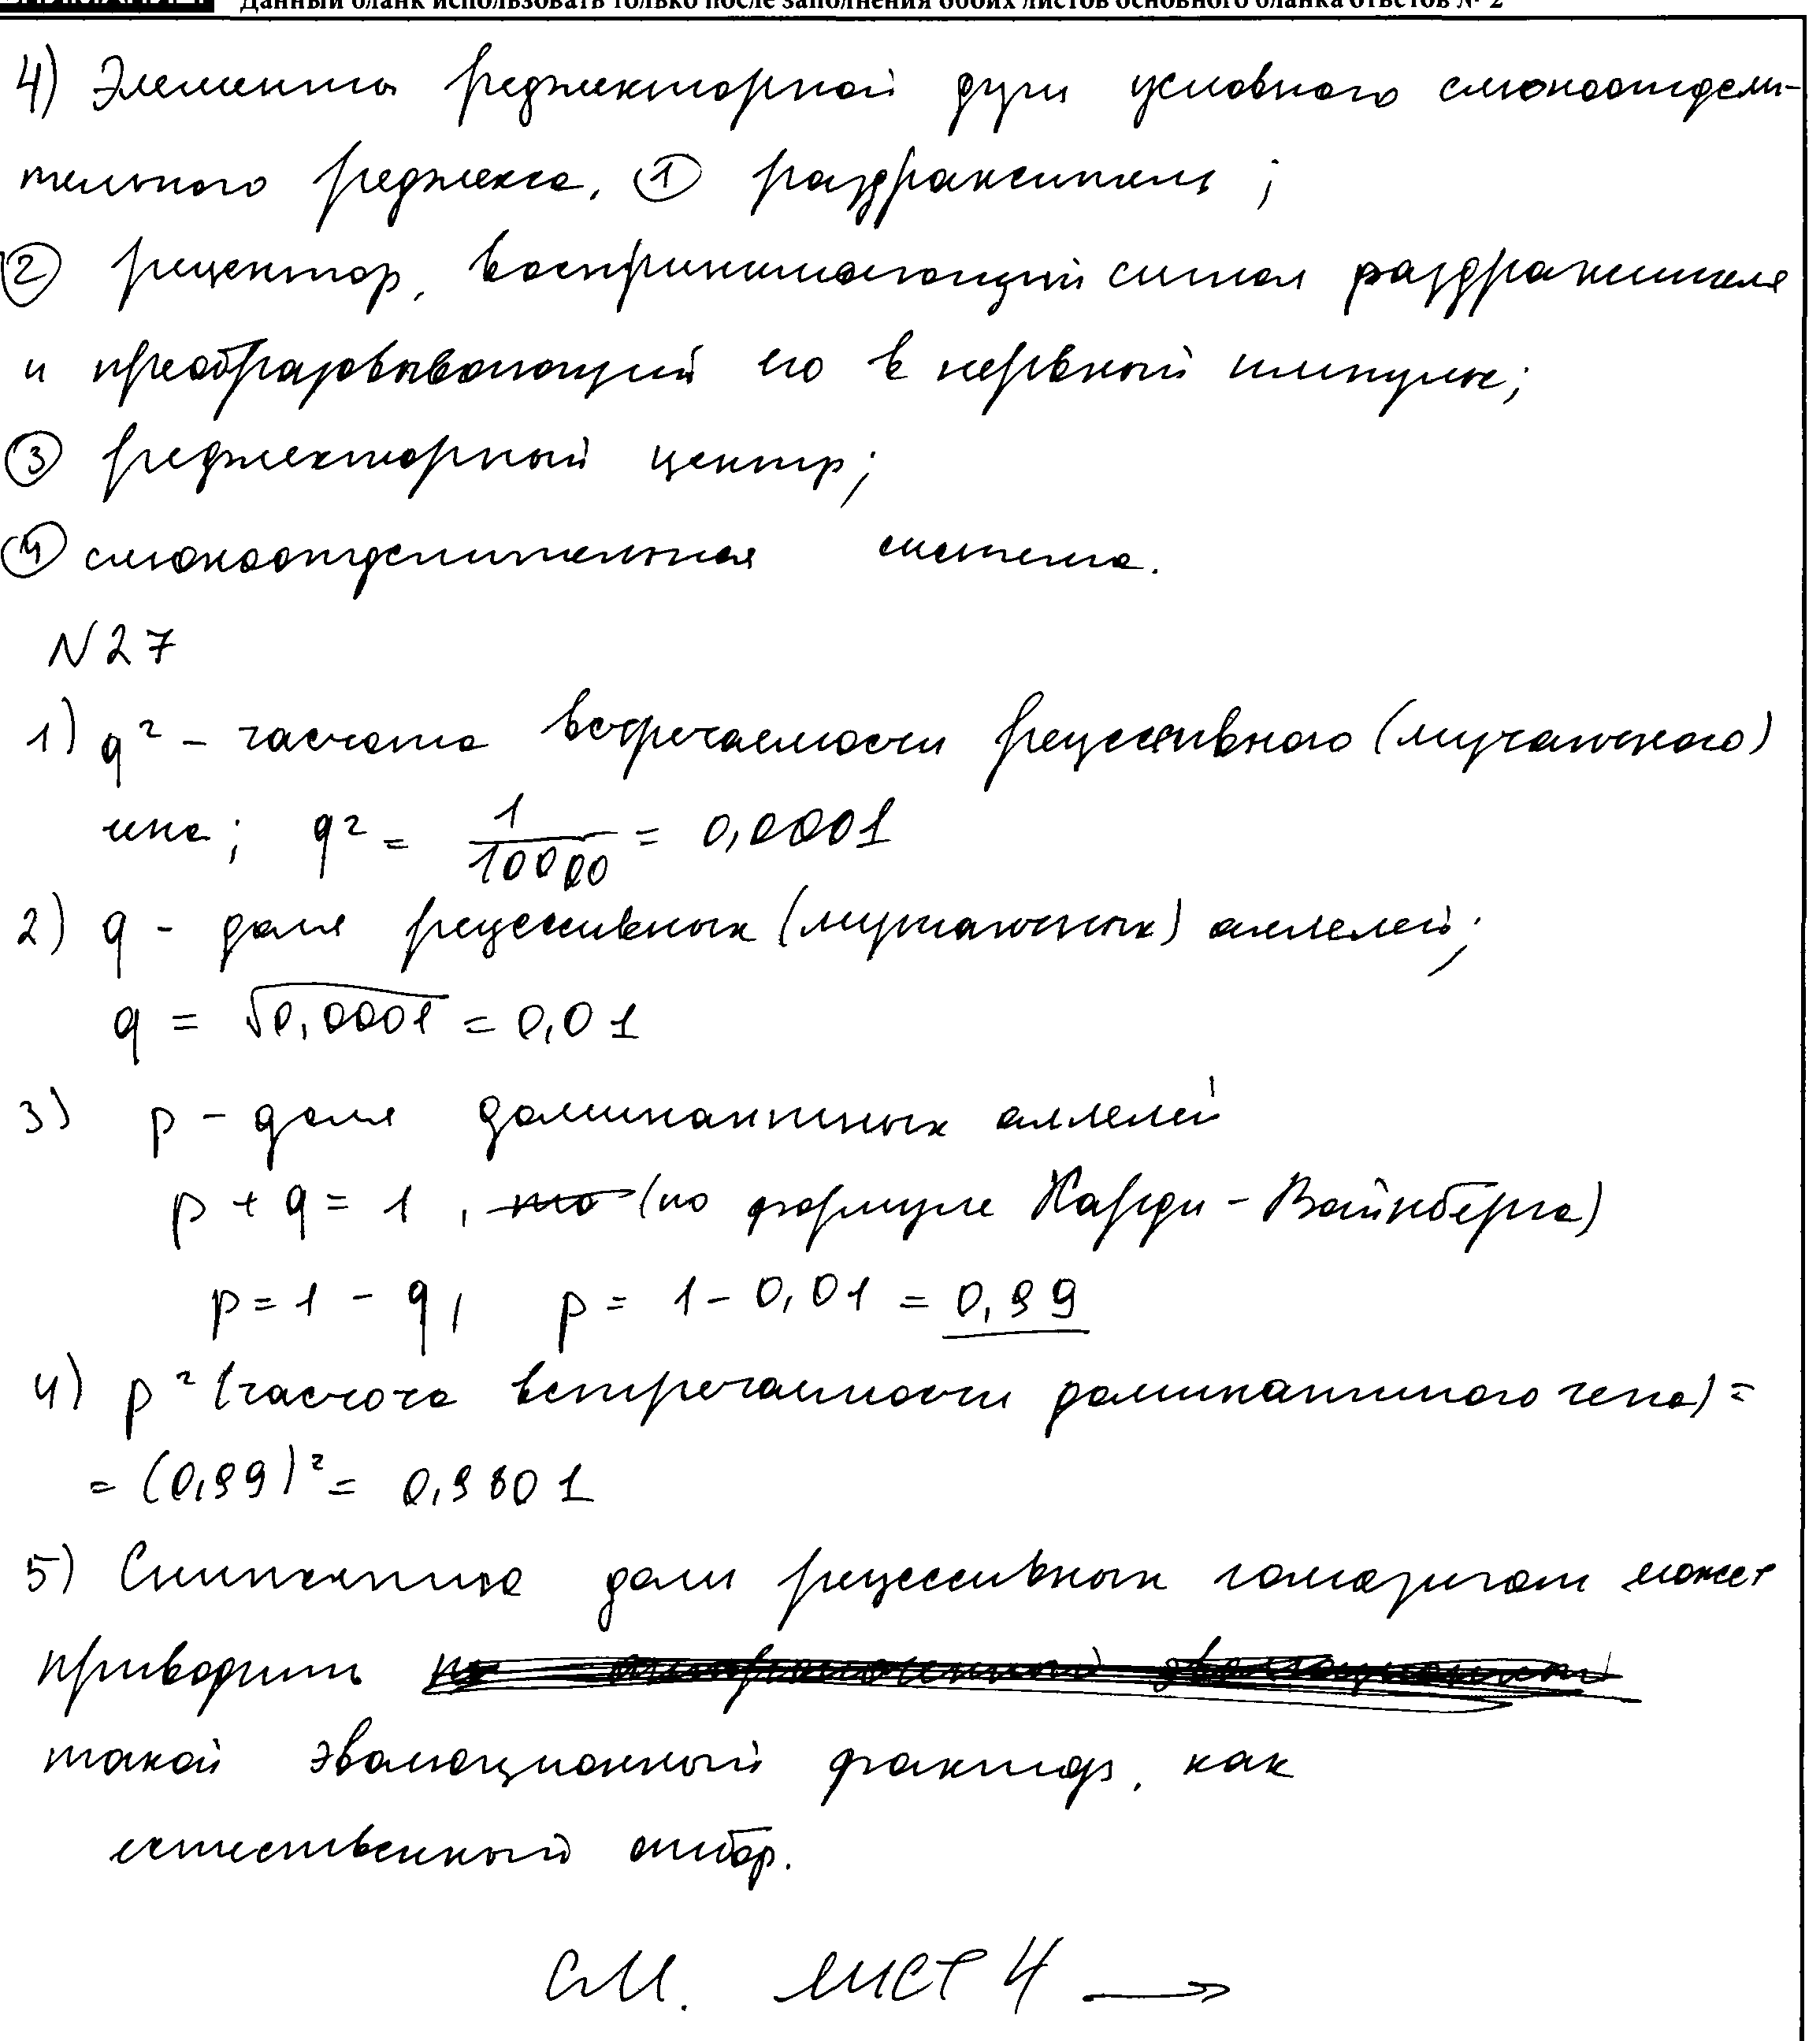 Данный бланк использовать только после заполнения обоих листов основного бланка ответов № 2
4) Элементы рефлекторной дуги условного слюноотдели-
тельного рефлекса. ① раздражитель ;
② рецептор, воспринимающий сигнал раздражителя
и преобразовывающий его в нервный импульс;
③ рефлекторный центр;
④ слюноотделительная система.
N27
1) q² - частота встречаемости рецессивного (мутантного)
гена; q² = 1/10000 = 0,0001
2) q - доля рецессивных (мутантных) аллелей;
q = √0,0001 = 0,01
3) p - доля доминантных аллелей
p + q = 1 , то (по формуле Харди - Вайнберга)
p = 1 - q, p = 1 - 0,01 = 0,99
4) p² (частота встречаемости доминантного гена) =
= (0,99)² = 0,9801
5) Снижению доли рецессивных гомозигот может
приводить
такой эволюционный фактор, как
естественный отбор.
см. лист 4 →